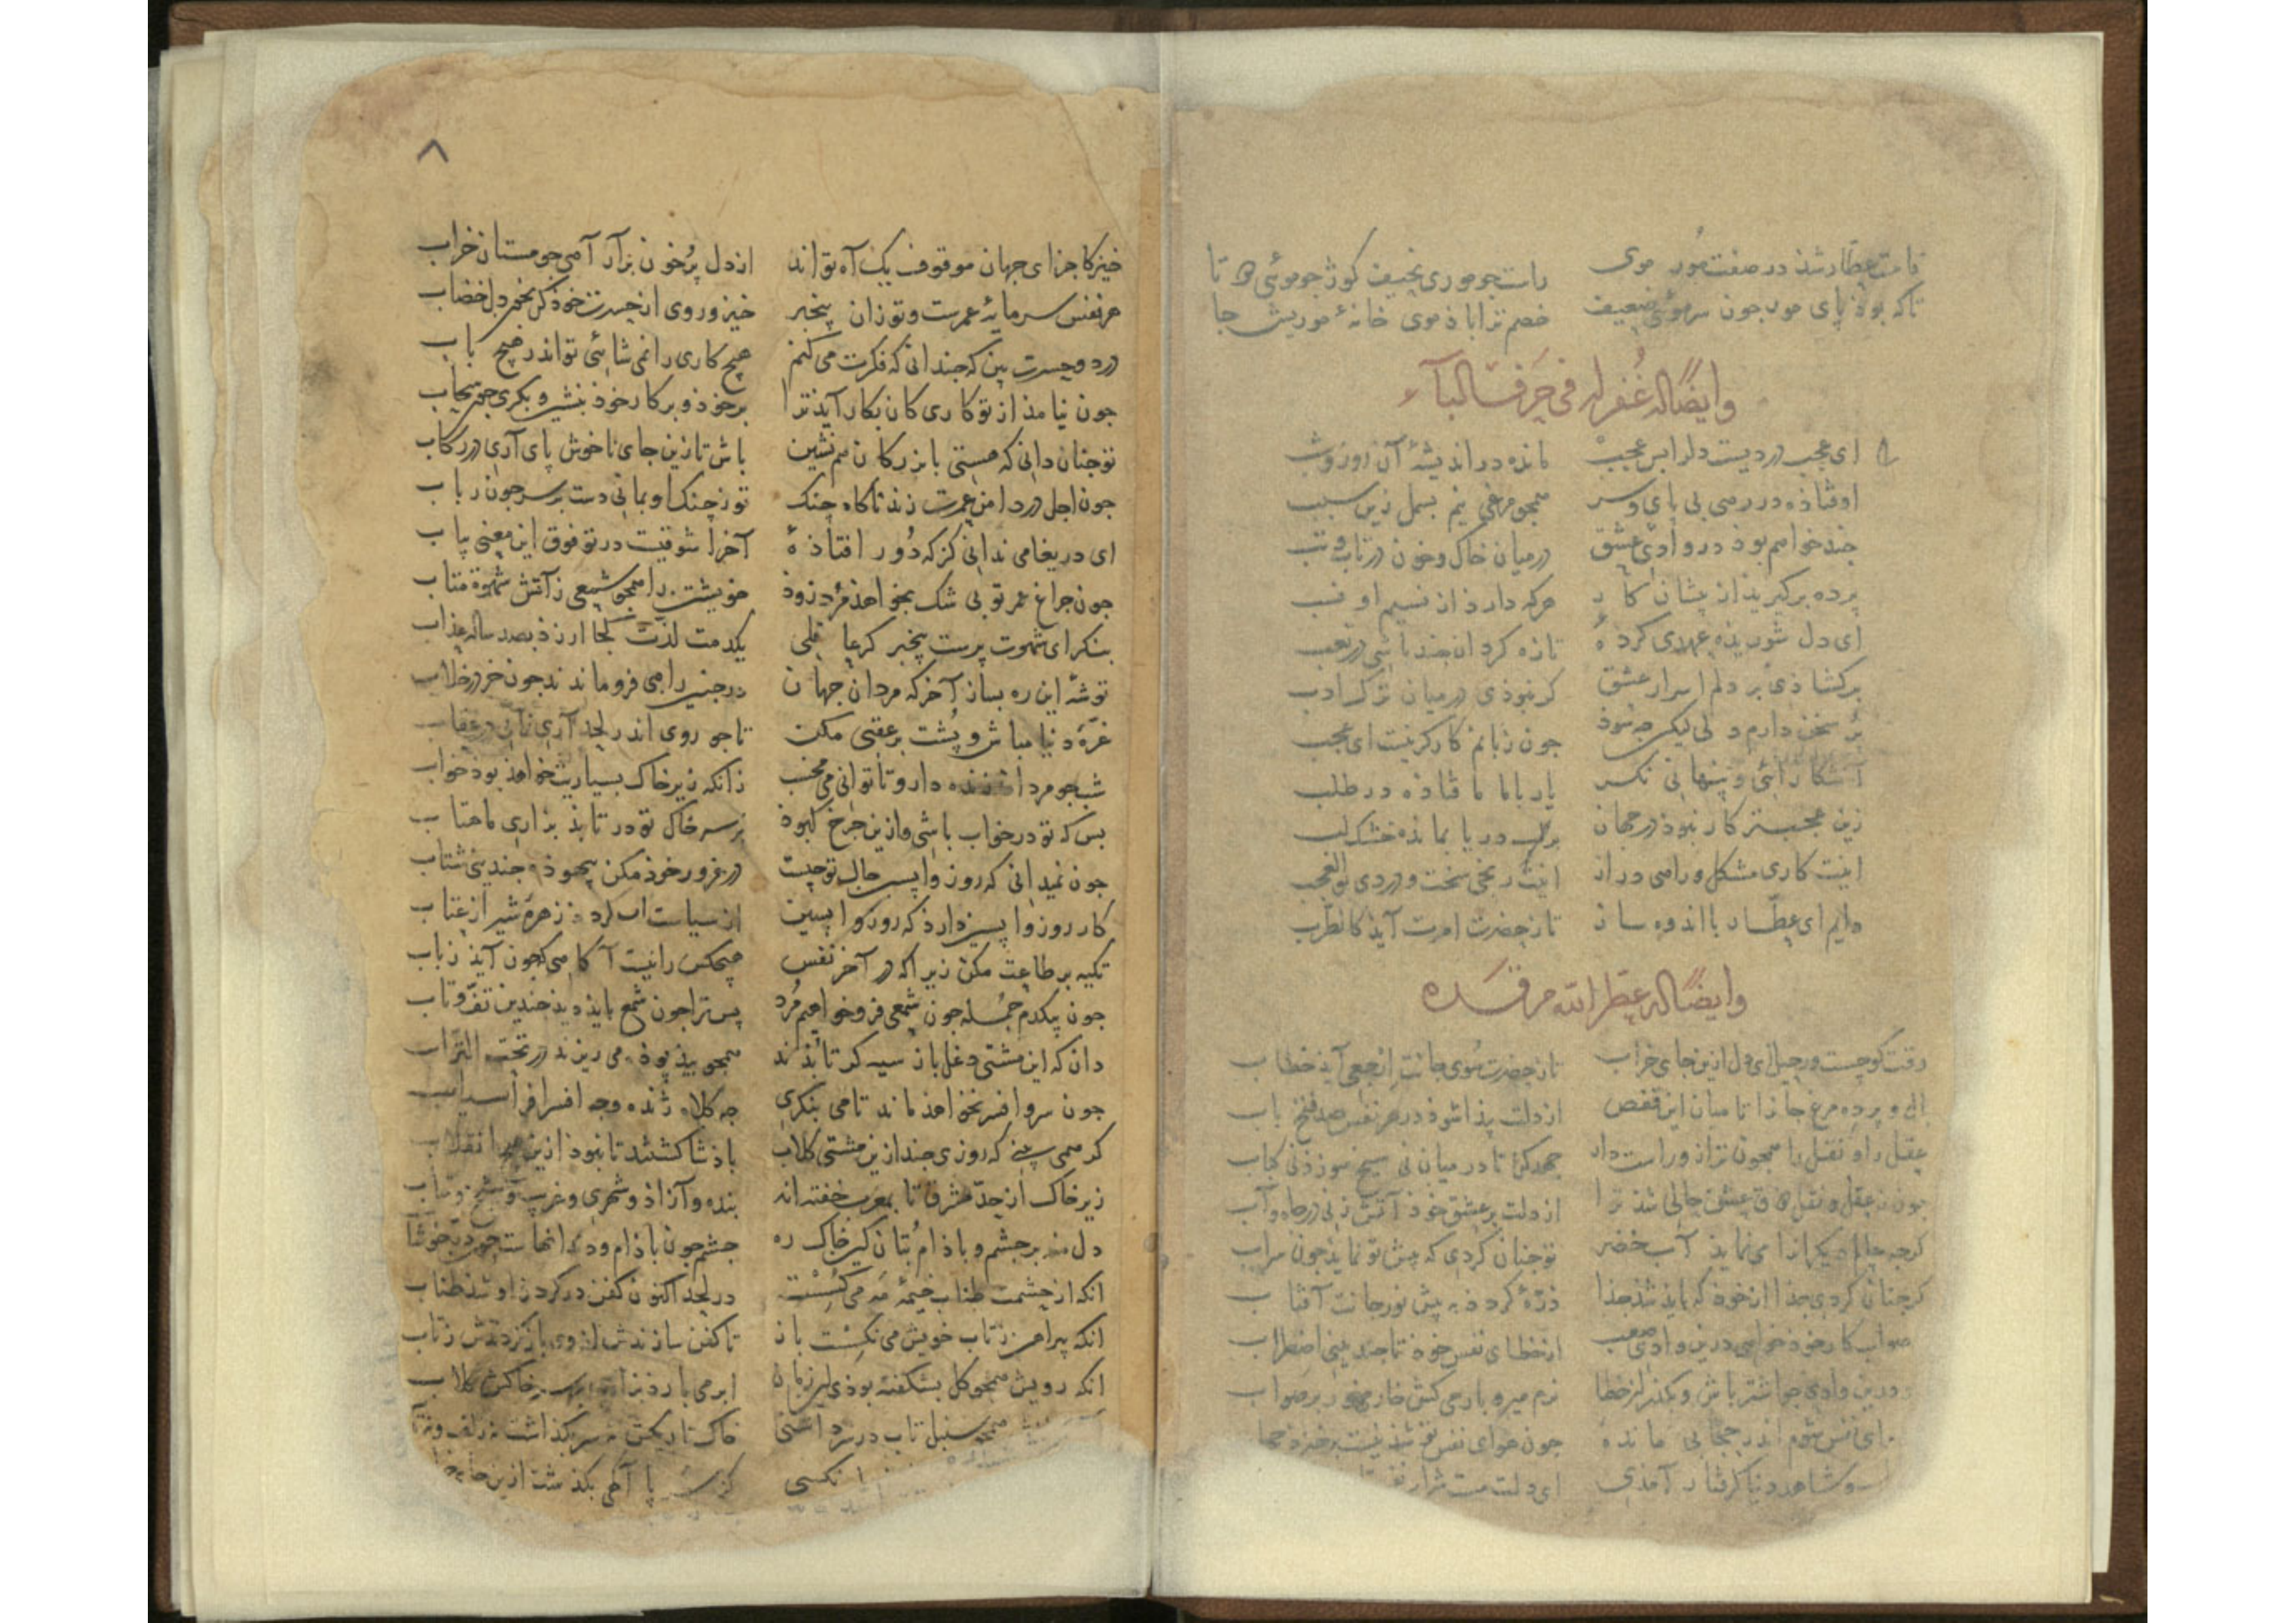 قامت عطّار شذ در صفت مور موی راست جو موری نحیف کوژ جو موئی دوتا
تاکه بوذ پای مور جون سر موئی ضعیف خصم ترا باذ موی خانهٔ موریش جا
وایضًا له غُفر له فی حَرف البآء
ای عجب دردیست دلرا بس عجب مانده در اندیشهٔ آن روز وشب
اوفتاذه در رهی بی پای وسر همجو مرغی نیم بسمل زین سبب
جند خواهم بوذ در وادی عشق درمیان خاک وخون در تاب وتب
پرده برکیریذ از پیشان کار هرکه دارذ از نسیم او نسب
ای دل شوریذه عهدی کردهٔ تازه کردان جند باشی در تعب
برکشاذی بر دلم اسرار عشق کر نبوذی درمیان ترک ادب
پُر سخن دارم دلی لیکن جه سوذ جون زبانم کارکر نیست ای عجب
آشکارائی وپنهانی نکر یار باما ما فتاذه در طلب
زین عجبتر کار نبوذ در جهان بر لب دریا بمانده خشک لب
اینت کاری مشکل وراهی دراز اینت رنجی سخت ودردی بوالعجب
دایم ای عطّار با اندوه ساز تا ز حضرت امرت آیذ کالطرب
وایضًا له عطر الله مرقده
وقت کوچست ورحیل ای دل ازین جای خراب تا ز حضرت سوی جانت اِرجعی آیذ خطاب
بال و پر ده مرغ جانرا تا میان این قفص از دلت پیذا شوذ در هر نفس صد فتح باب
عقل را و نقل را همجون ترازو راست دار جهد کن تا در میان نی سیخ سوزذ نی کباب
جون ز عقل و نقل ذوق عشق حالی شذ ترا از دلت بر عشق خوذ آتش زنی در جاه وآب
کرجه جانم دیکرانرا می نمایذ آب خضر تو جنان کردی که پیش تو نمایذ جون سراب
کر جنان کردی جذا از خوذ که بایذ شذ جذا ذرّهٔ کردذ به پیش نور جانت آفتاب
صواب کار خوذ خواهی درین وادی صعب از خطای نفس خوذ تا جند بینی اضطراب
درین وادی جو اشتر باش وبکذر از خطا نرم میرو بار می کش خار میخور بر صواب
ای نفس شوم اندر حجابی مانده جون هوای نفس تو
وشاهد دنیا کرفتار آمذی ای دلت مست شراب
٨
خیز کاجزای جهان موقوف یک آه تواند از دل پُرخون برآر آهی جو مستان خراب
هر نفس سرمایهٔ عمرست وتو زان بیخبر خیز وروی از حسرت خوذ کن بخون دل خضاب
درد وحسرت بین که جندانی که فکرت می کنم هیچ کاری را نمی شائی تو اندر هیچ باب
جون نیامذ از تو کاری کان بکار آیذ ترا بر خوذ و بر کار خوذ بنشین و بکری جون سحاب
تو جنان دانی که هستی با بزرکان هم نشین باش تا زین جای ناخوش پای آری در رکاب
جون اجل در دامن عمرت زند ناکاه چنک تو ز چنک او بمانی دست بر سر جون رباب
ای دریغا می ندانی کز که دُور افتاذهٔ آخر ار شوقیست در تو ذوق این معنی بیاب
جون جراغ عمر تو بی شک بخواهذ مُرد زود خویشتن را همجو شمعی زآتش شهوة متاب
بنکر ای شهوت پرست بیخبر کر عاقلی یکدمت لذّت کجا ارزذ بصد ساله عذاب
توشهٔ این ره بساز آخر که مردان جهان در جنین راهی فرو ماندند جون خر در خلاب
غرّهٔ دنیا مباش وپُشت بر عقبی مکن تا جو روی اندر لحد آری نمانی در عقاب
شب جو مردان زنده دار و تا توانی می مخسب زانکه زیر خاک بسیاریت خواهذ بوذ خواب
بس که تو در خواب باشی واز بن جرخ کبوذ بر سر خاک تو در تابذ بزاری ماهتاب
جون نمیدانی که روز واپسین حال تو جیست در غرور خوذ مکن بیهوذه جندینی شتاب
کار روز واپسین دارذ که روز واپسین از سیاست آب کردذ زهرهٔ شیر از عتاب
تکیه بر طاعت مکن زیراکه در آخر نفس هیچکس را نیست آکاهی که جون آیذ ز باب
جون بیکدم جُمله جون شمعی فرو خواهیم مُرد پس ترا جون شمع بایذ دیذ جندین تفّ وتاب
دان که این مشتی دغل باز سیه کر تا نه اند همجو بید پوذه می ریزند در تحت التراب
جون سر و افسر نخواهذ ماند تا می بنکری جه کلاه ژنده وجه افسر افراسیاب
کر همی بینی که روزی جند ازین مشتی کلاب باذشا کشتند تا نبوذ ازین انقلاب
زیر خاک از حدّ مشرق تا بمغرب خفته اند بنده و آزاذ و شهری و غریب و شیخ وشاب
دل منه بر جشم و باذام بُتان کز خاک ره جشم جون باذام
انکه از جشمت طناب خیمهٔ مه می کسست در لحد اکنون کفن در کردن او شذ طناب
انکه پیراهن زتاب خویش می نکسست باز تا کفن سازندش از وی باز کردندش زتاب
انکه رویش همجو کل بشکفته بوذی این زمان ابر می بارذ بزاری بر سر خاکش کلاب
همجو سنبل تاب در بر داشتی خاک تاریکش نه سر بکذاشت نه زلف ونه تاب